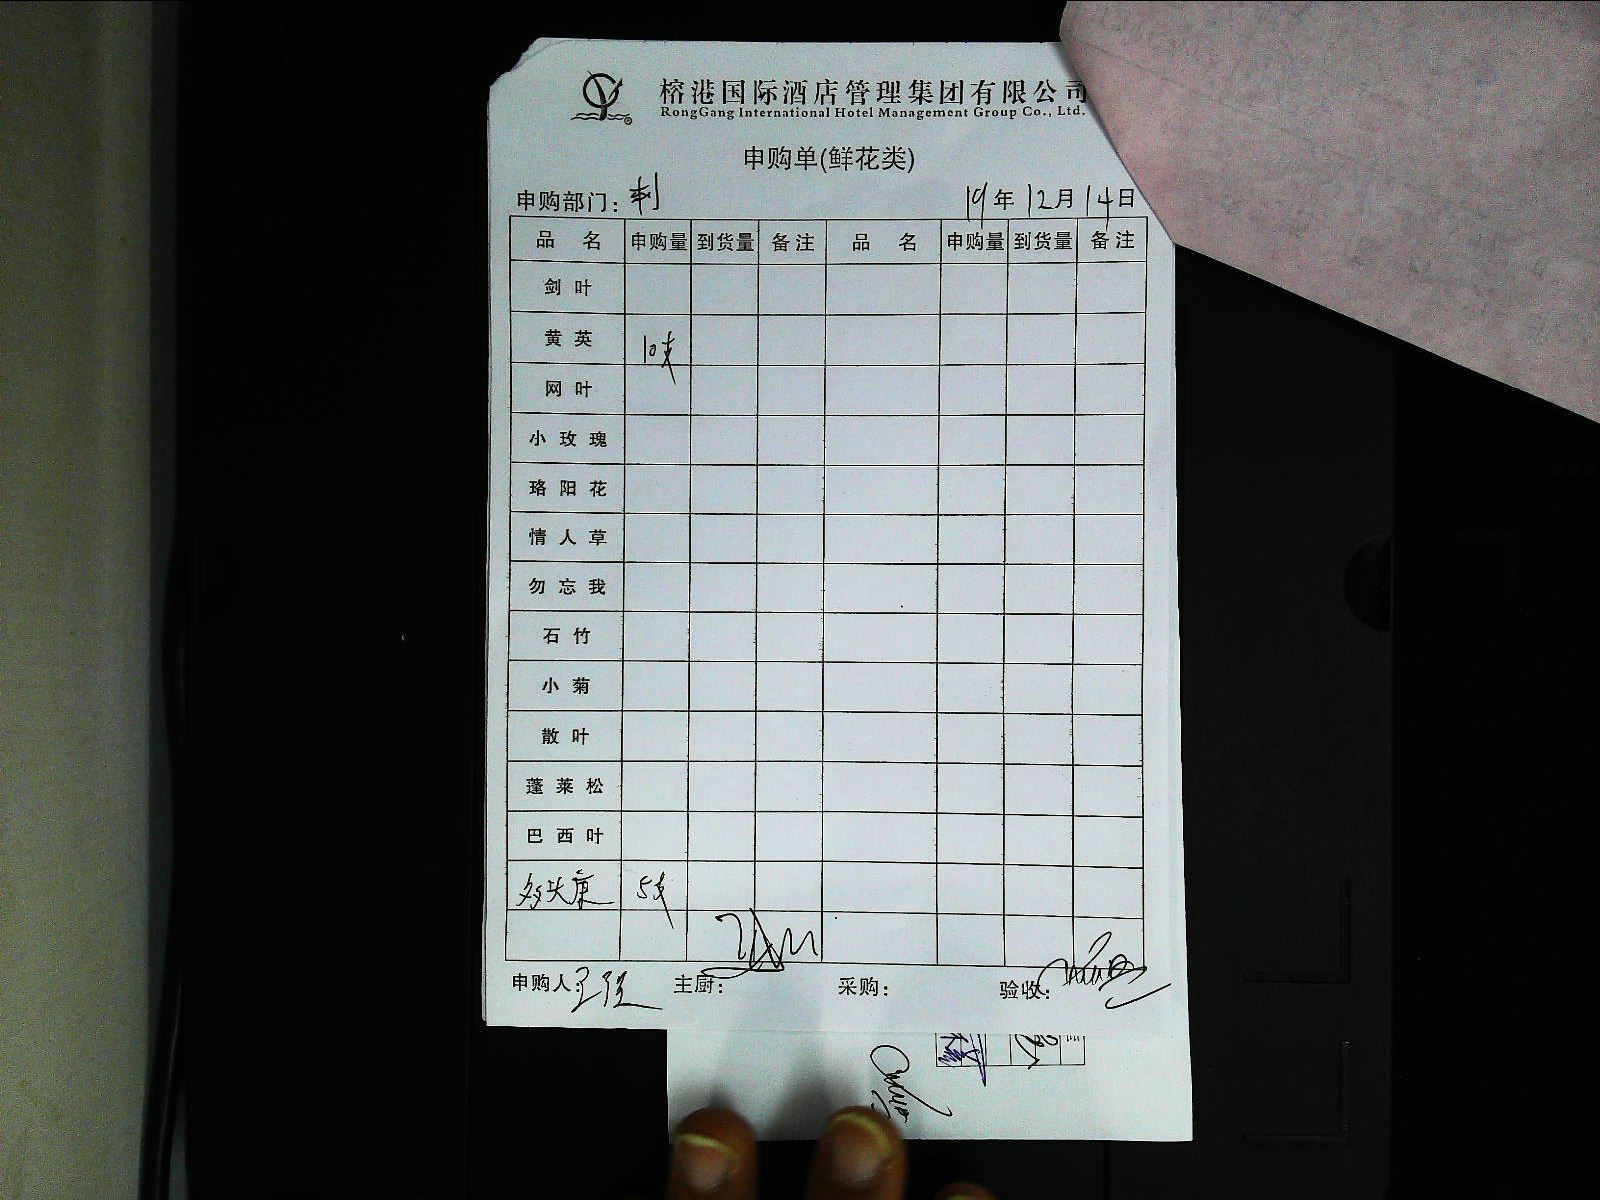 榕港国际酒店管理集团有限公司
RongGang International Hotel Management Group Co., Ltd.
申购单(鲜花类)
申购部门: 刺 19年12月14日
品名 申购量 到货量 备注 品名 申购量 到货量 备注
剑叶
黄英 10支
网叶
小玫瑰
珞阳花
情人草
勿忘我
石竹
小菊
散叶
蓬莱松
巴西叶
多头康 5支
申购人: 主厨: 采购: 验收: